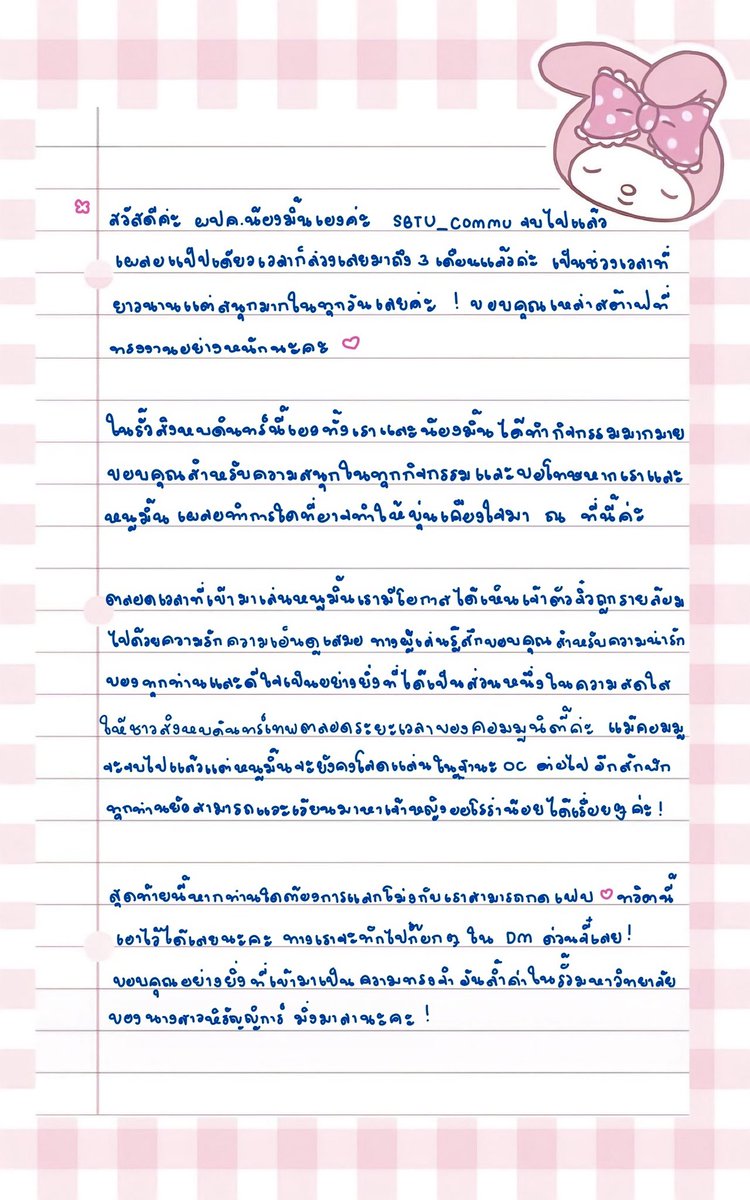 สวัสดีค่ะ ผปค.น้องมิ้นเองค่ะ SBTU_Commu จบไปแล้ว
เผลอแป๊บเดียวเวลาก็ล่วงเลยมาถึง 3 เดือนแล้วค่ะ เป็นช่วงเวลาที่
ยาวนานแต่สนุกมากในทุกวันเลยค่ะ ! ขอบคุณเหล่าสต๊าฟที่
ทรงงานอย่างหนักนะคะ
ในรั้วสิงหบดินทร์นี้เองทั้งเราและน้องมิ้นได้ทำกิจกรรมมากมาย
ขอบคุณสำหรับความสนุกในทุกกิจกรรมและขอโทษหากเราและ
หนูมิ้นเผลอทำการใดที่อาจทำให้ขุ่นเคืองใจมา ณ ที่นี้ค่ะ
ตลอดเวลาที่เข้ามาเล่นหนูมิ้นเรามีโอกาสได้เห็นเจ้าตัวจิ๋วถูกรายล้อม
ไปด้วยความรักความเอ็นดูเสมอ ทางผู้เล่นรู้สึกขอบคุณสำหรับความน่ารัก
ของทุกท่านและดีใจเป็นอย่างยิ่งที่ได้เป็นส่วนหนึ่งในความสดใส
ให้ชาวสิงหบดินทร์เทพตลอดระยะเวลาของคอมมูนิตี้ค่ะ แม้คอมมู
จะจบไปแล้วแต่หนูมิ้นจะยังคงโลดแล่นในฐานะ OC ต่อไปอีกสักพัก
ทุกท่านยังสามารถแวะเวียนมาหาเจ้าหญิงออโรร่าน้อยได้เรื่อยๆค่ะ!
สุดท้ายนี้หากท่านใดต้องการแลกโม่งกับเราสามารถกดเฟบ ทวิตนี้
เอาไว้ได้เลยนะคะ ทางเราจะทักไปก๊อกๆ ใน DM ด่วนจี๋เลย!
ขอบคุณอย่างยิ่งที่เข้ามาเป็นความทรงจำอันล้ำค่าในรั้วมหาวิทยาลัย
ของนางสาวหิรัญญิการ์ มิ่งมาลานะคะ !